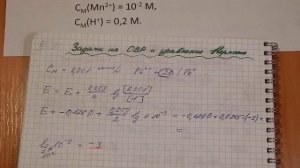 C_M(Mn²⁺) = 10⁻² М,
C_M(H⁺) = 0,2 М.
Задачи на ОВР и уравнение Нернста
C_M = 0,001 Pb²⁺ | Pb⁰
E = E₀ + 0,059/n lg [0,001]/[1]
E = -0,126В + 0,059/2 lg 1·10⁻³ = -0,126В + 0,0295·(-3) =
=
lg 10⁻³ = -3